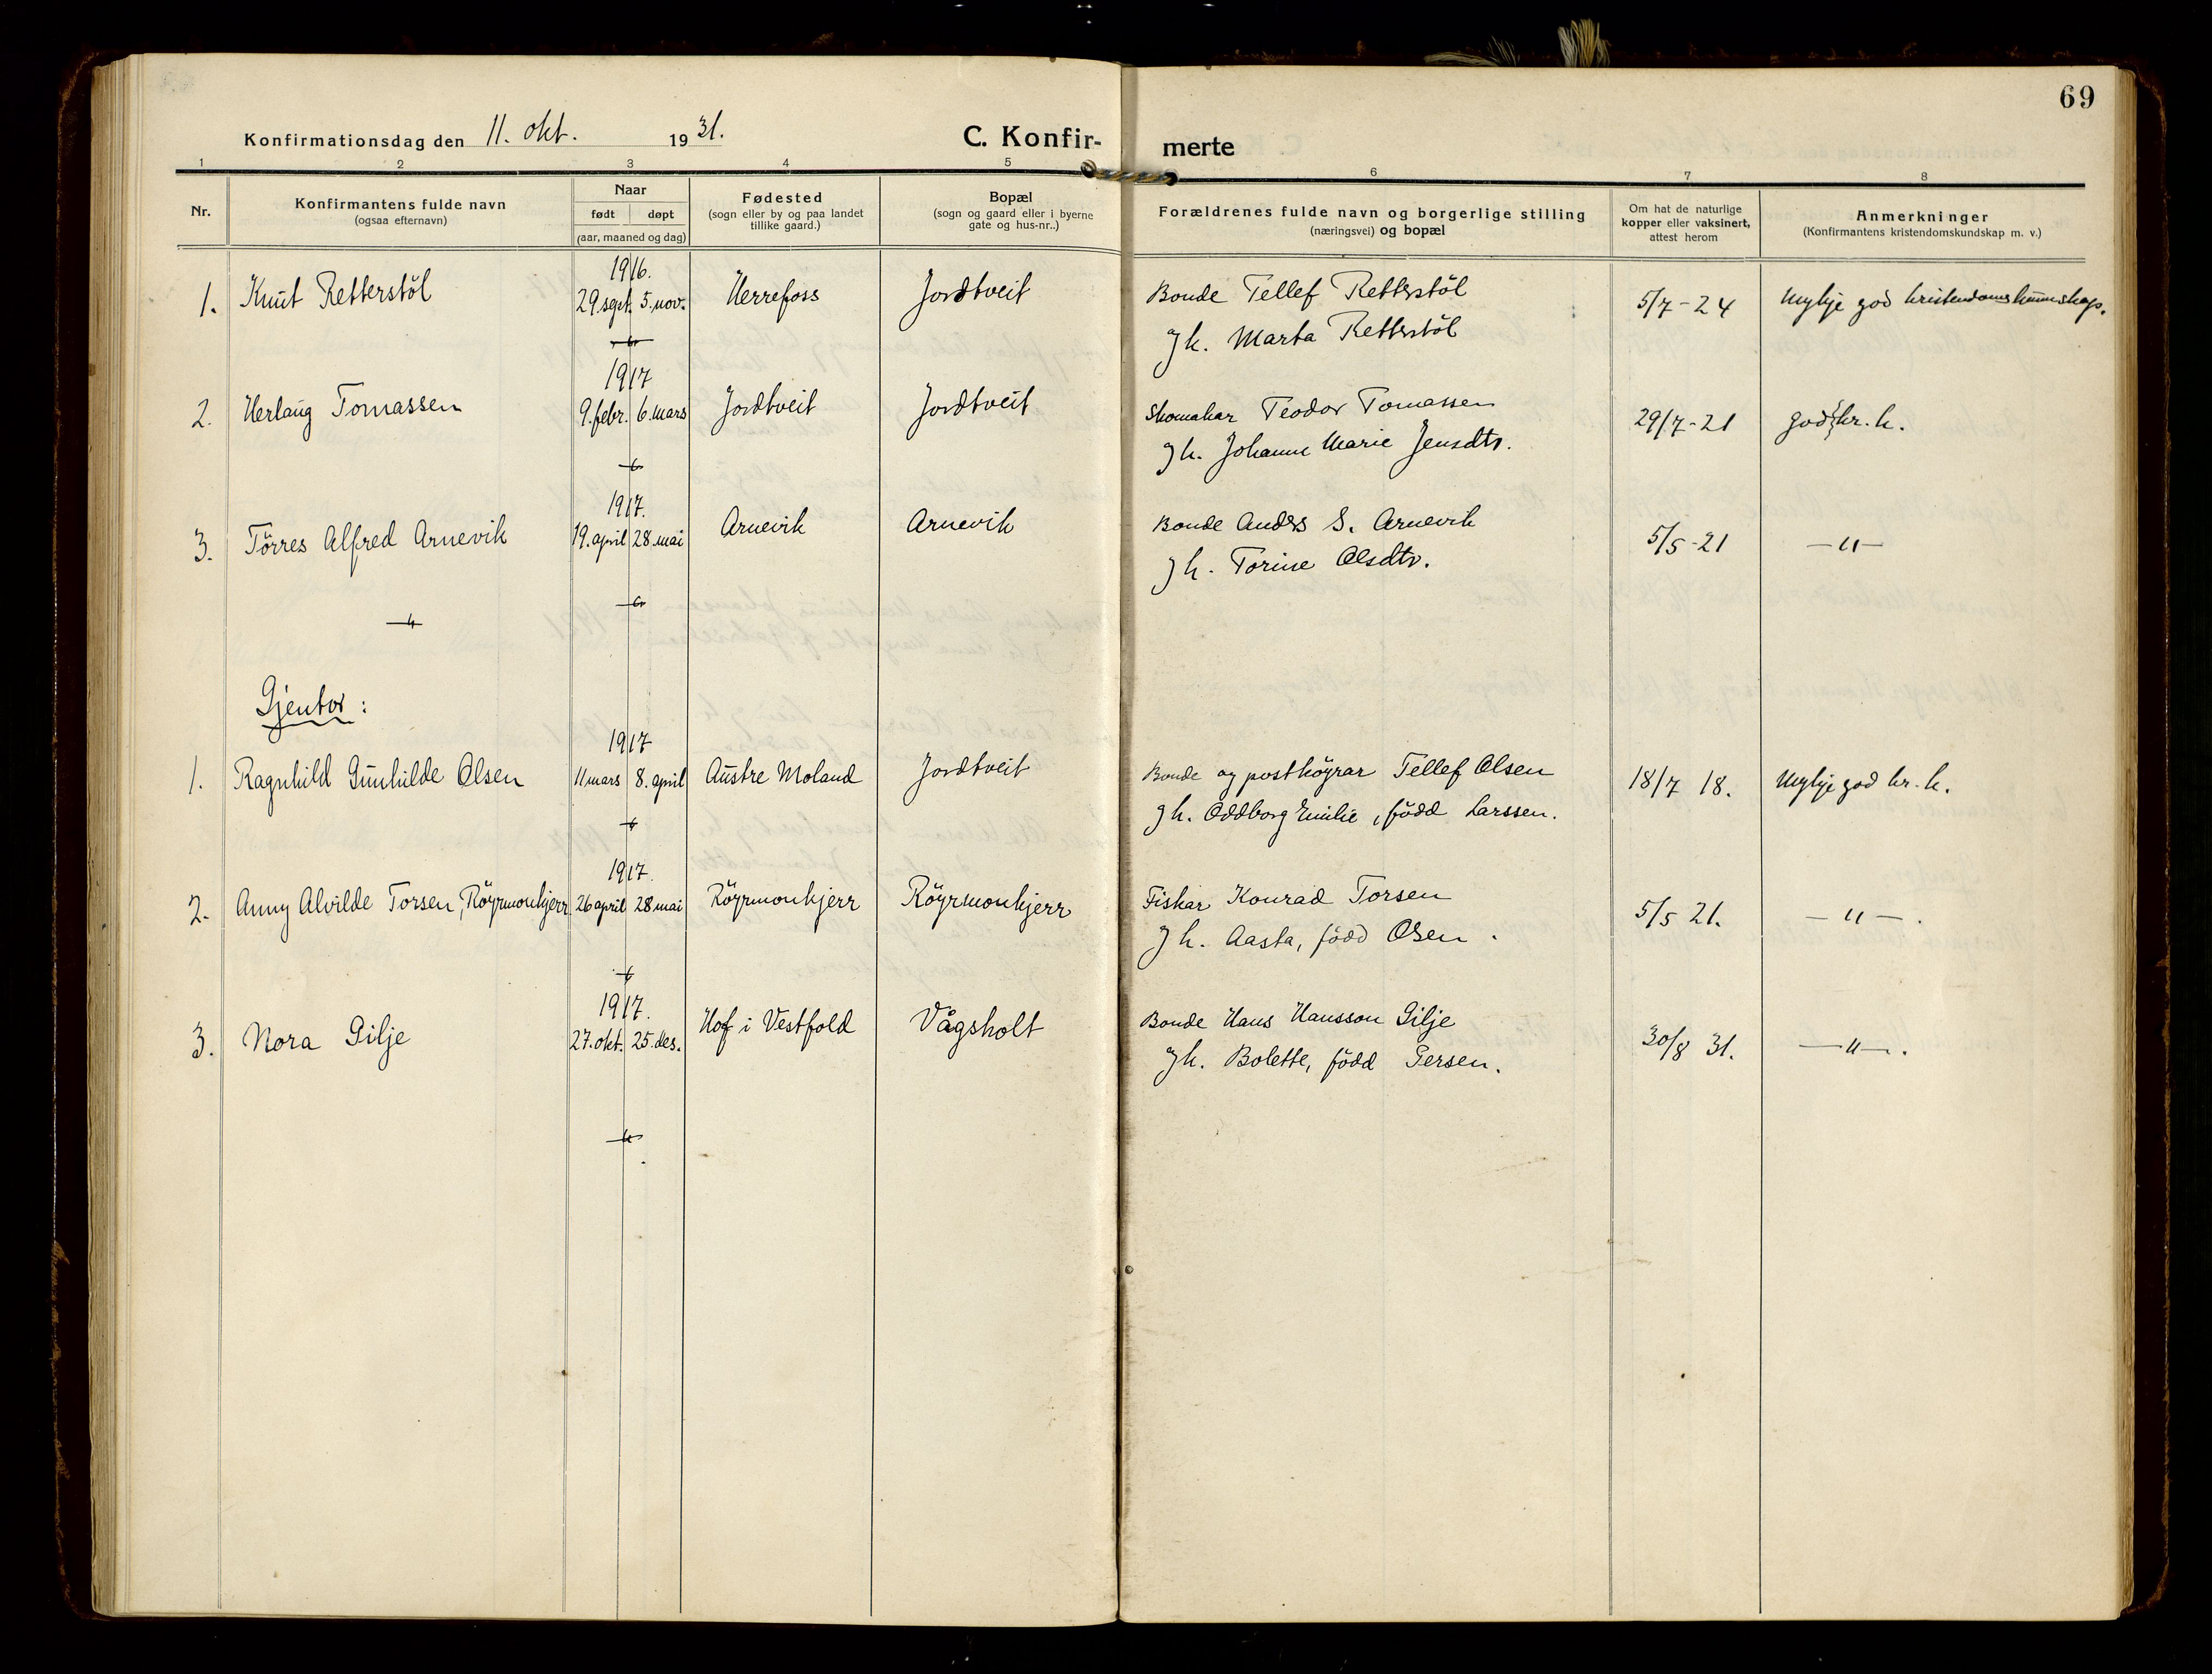 69
Konfirmationsdag den 11. okt. 1931. C. Konfirmerte
1 2 3 4 5 6 7 8
Nr. Konfirmantens fulde navn (ogsaa efternavn) Naar født døpt (aar, maaned og dag) Fødested (sogn eller by og paa landet tillike gaard.) Bopæl (sogn og gaard eller i byerne gate og hus-nr..) Forældrenes fulde navn og borgerlige stilling (næringsvei) og bopæl Om hat de naturlige kopper eller vaksinert, attest herom Anmerkninger (Konfirmantens kristendomskundskap m. v.)
1916.
1. Knut Retterstöl 29. sept. 5. nov. Herrefoss Jordtveit Bonde Tellef Retterstöl 5/7-24 Mykje god kristendomskunnskap.
Jk. Marta Retterstöl
1917
2. Herlaug Tomassen 9. febr. 6. mars Jordtveit Jordtveit Skomakar Teodor Tomassen 29/7-21 god kr. k.
Jk. Johanne Marie Jensdtr.
1917.
3. Törres Alfred Arnevik 19. april 28. mai Arnevik Arnevik Bonde Anders S. Arnevik 5/5-21 —"—
Jk. Torine Olsdtr.
Gjentor:
1917
1. Ragnhild Gunhilde Olsen 11 mars 8. april Austre Moland Jordtveit Bonde og postköyrar Tellef Olsen 18/7 18. Mykje god kr. k.
Jk. Oddborg Emilie, född Larssen.
1917.
2. Anny Alvilde Torsen, Röyrmonkjerr 26 april 28 mai Röyrmonkjerr Röyrmonkjerr Fiskar Konrad Torsen 5/5 21. —"—.
Jk. Aasta, född Olsen.
1917.
3. Nora Gilje 27. okt. 25. des. Hof i Vestfold Vågsholt Bonde Hans Hansson Gilje 30/8 31. —"—.
Jk. Bolette, född Persen.